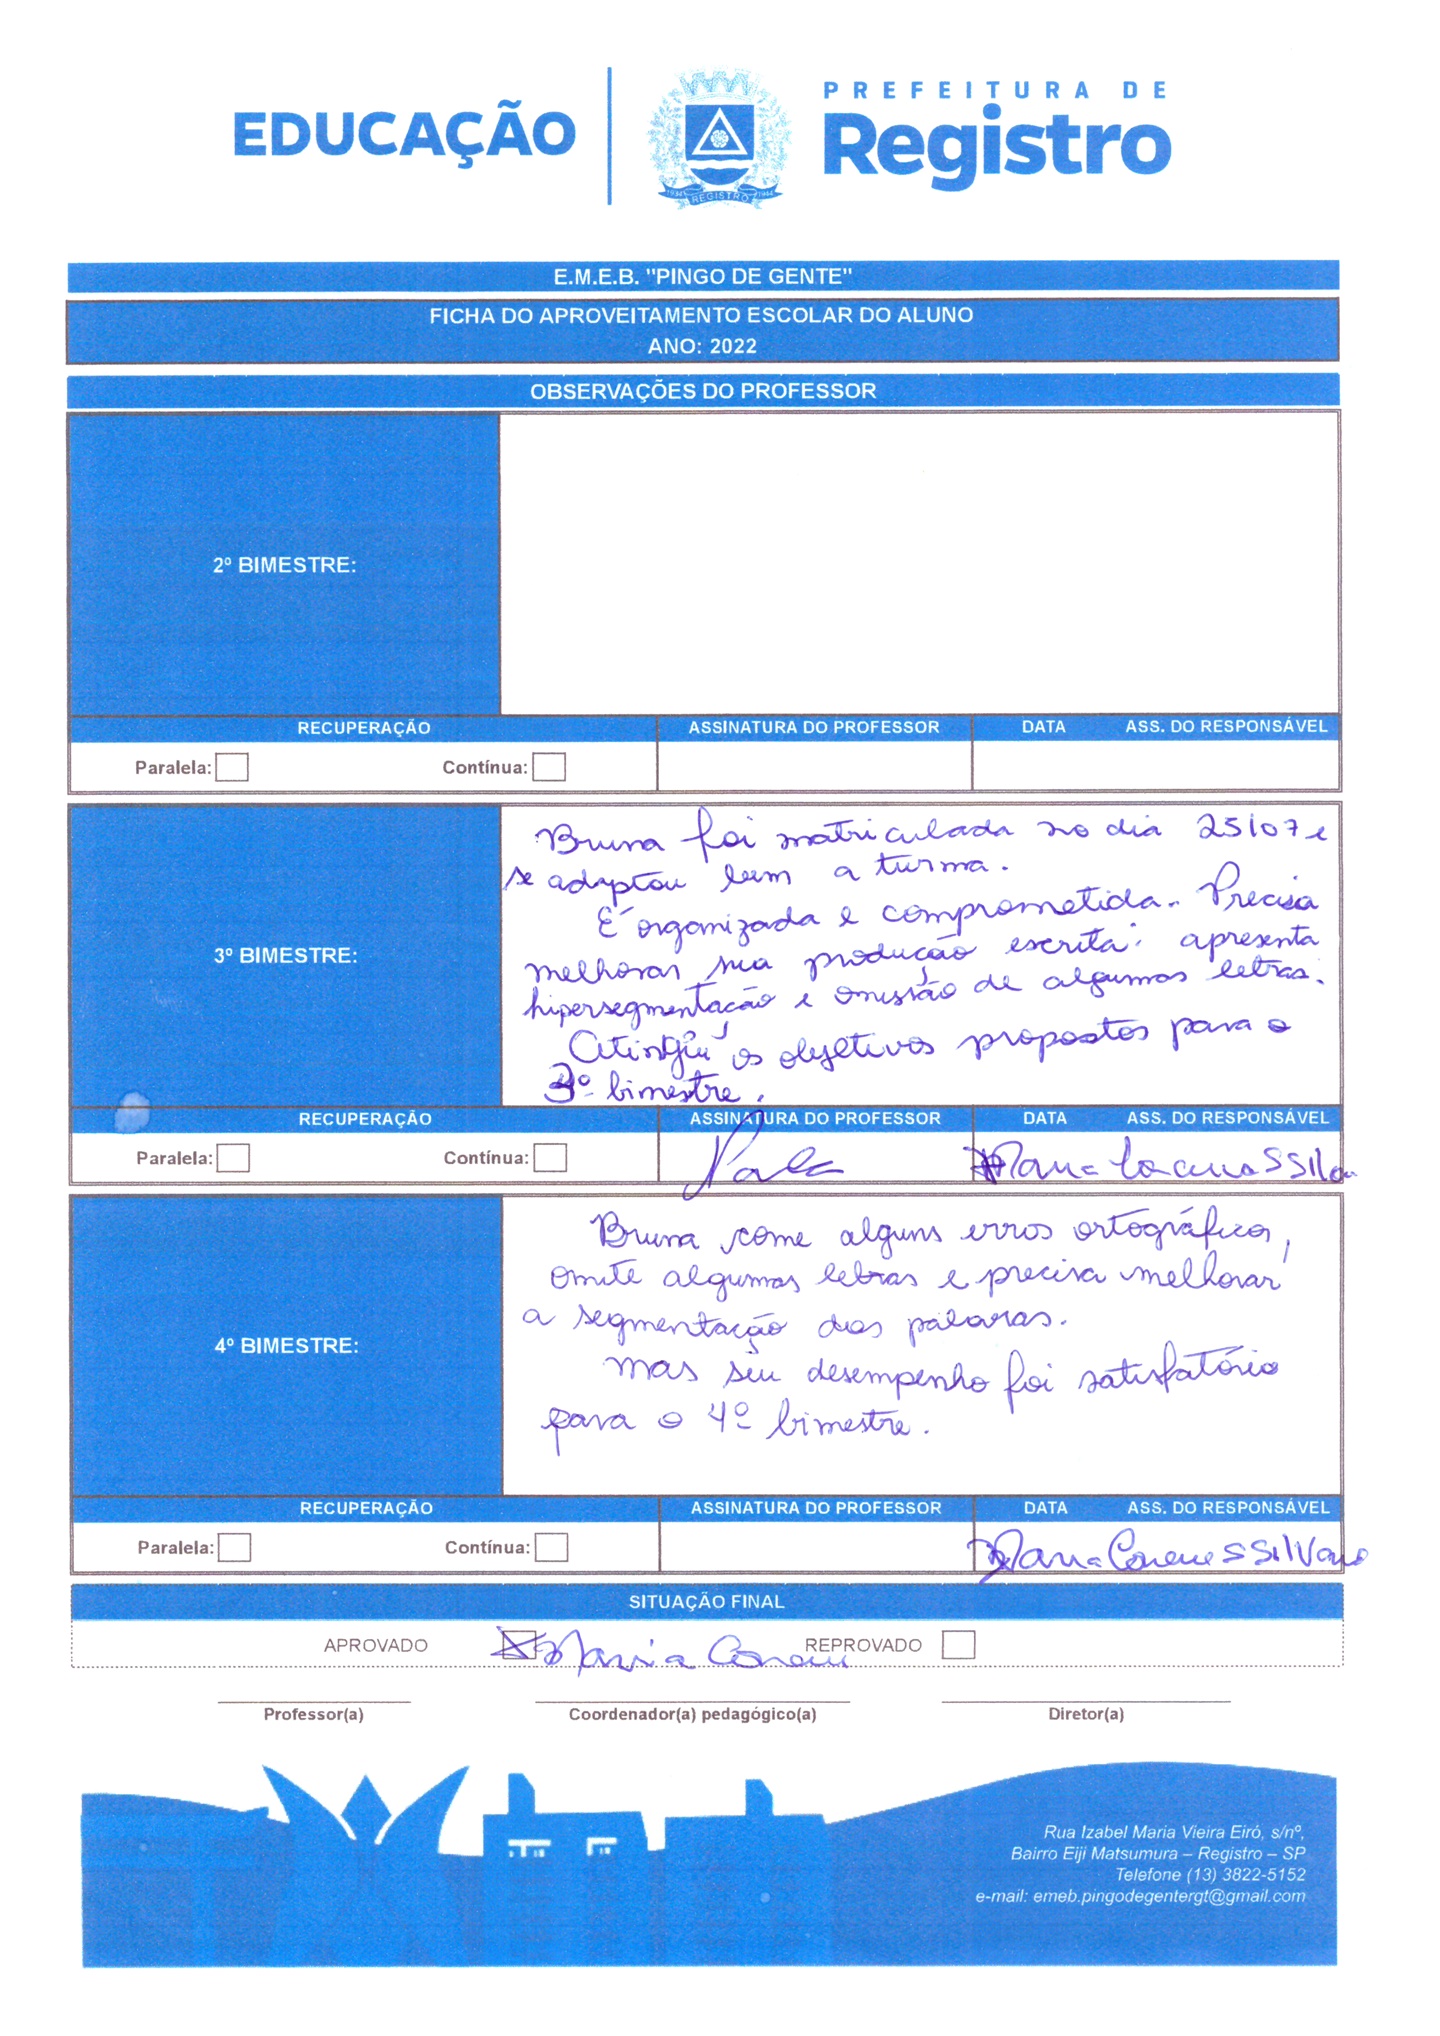 EDUCAÇÃO
PREFEITURA DE
Registro
REGISTRO
E.M.E.B. "PINGO DE GENTE"
FICHA DO APROVEITAMENTO ESCOLAR DO ALUNO
ANO: 2022
OBSERVAÇÕES DO PROFESSOR
2º BIMESTRE:
RECUPERAÇÃO ASSINATURA DO PROFESSOR DATA ASS. DO RESPONSÁVEL
Paralela: Contínua:
3º BIMESTRE:
Bruna foi matriculada no dia 25/07 e
se adaptou bem a turma.
É organizada e comprometida. Precisa
melhorar sua produção escrita: apresenta
hipersegmentação e omissão de algumas letras.
Atingiu os objetivos propostos para o
3º bimestre.
RECUPERAÇÃO ASSINATURA DO PROFESSOR DATA ASS. DO RESPONSÁVEL
Paralela: Contínua: Maria
4º BIMESTRE:
Bruna come alguns erros ortográficos,
omite algumas letras e precisa melhorar
a segmentação das palavras.
Mas seu desempenho foi satisfatório
para o 4º bimestre.
RECUPERAÇÃO ASSINATURA DO PROFESSOR DATA ASS. DO RESPONSÁVEL
Paralela: Contínua: Maria
SITUAÇÃO FINAL
APROVADO Maria REPROVADO
Professor(a) Coordenador(a) pedagógico(a) Diretor(a)
Rua Izabel Maria Vieira Eiró, s/nº,
Bairro Eiji Matsumura – Registro – SP
Telefone (13) 3822-5152
e-mail: emeb.pingodegentergt@gmail.com